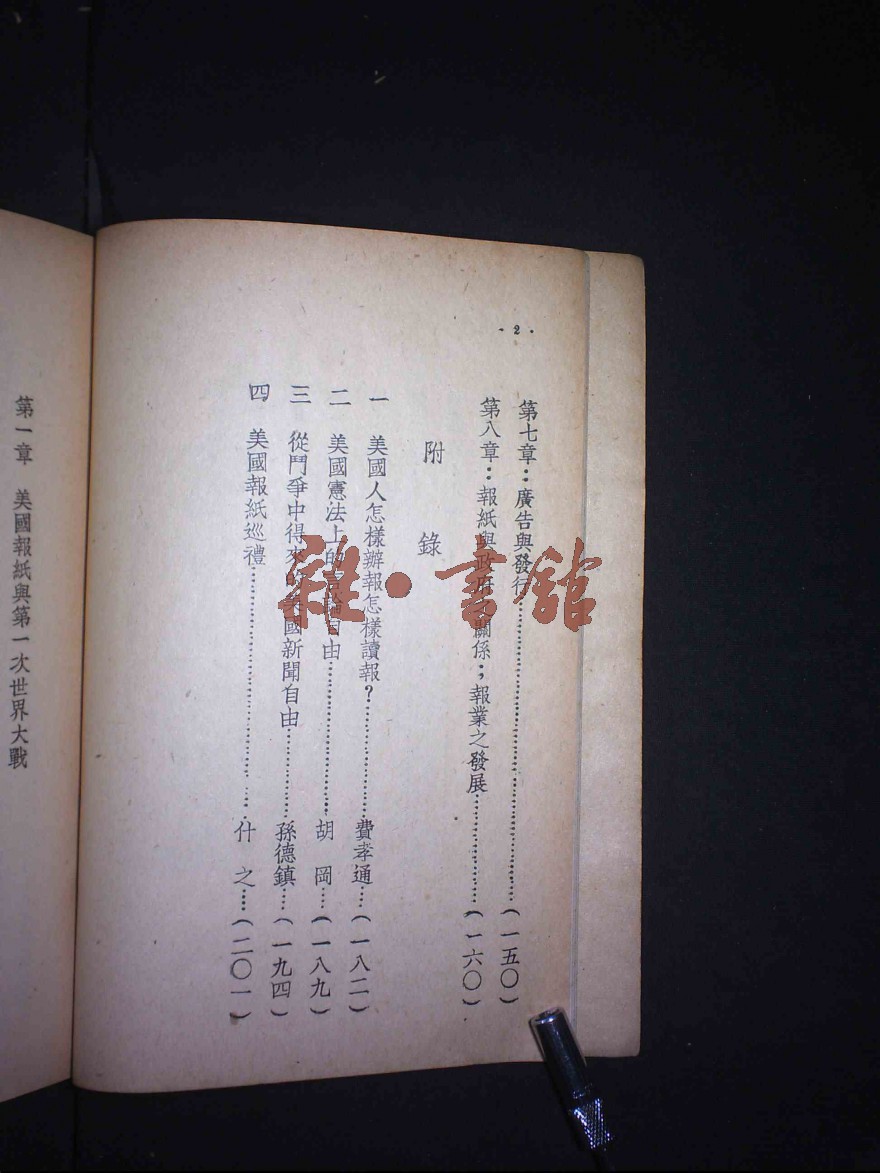 · 2 ·
第七章：廣告與發行……(一五〇)
第八章：報紙與政府之關係；報業之發展……(一六〇)
附 錄
一 美國人怎樣辦報怎樣讀報？……費孝通……(一八二)
二 美國憲法上的言論自由……胡 岡……(一八九)
三 從鬥爭中得來的美國新聞自由……孫德鎮……(一九四)
四 美國報紙巡禮……什 之……(二〇一)
第一章 美國報紙與第一次世界大戰
雜·書館